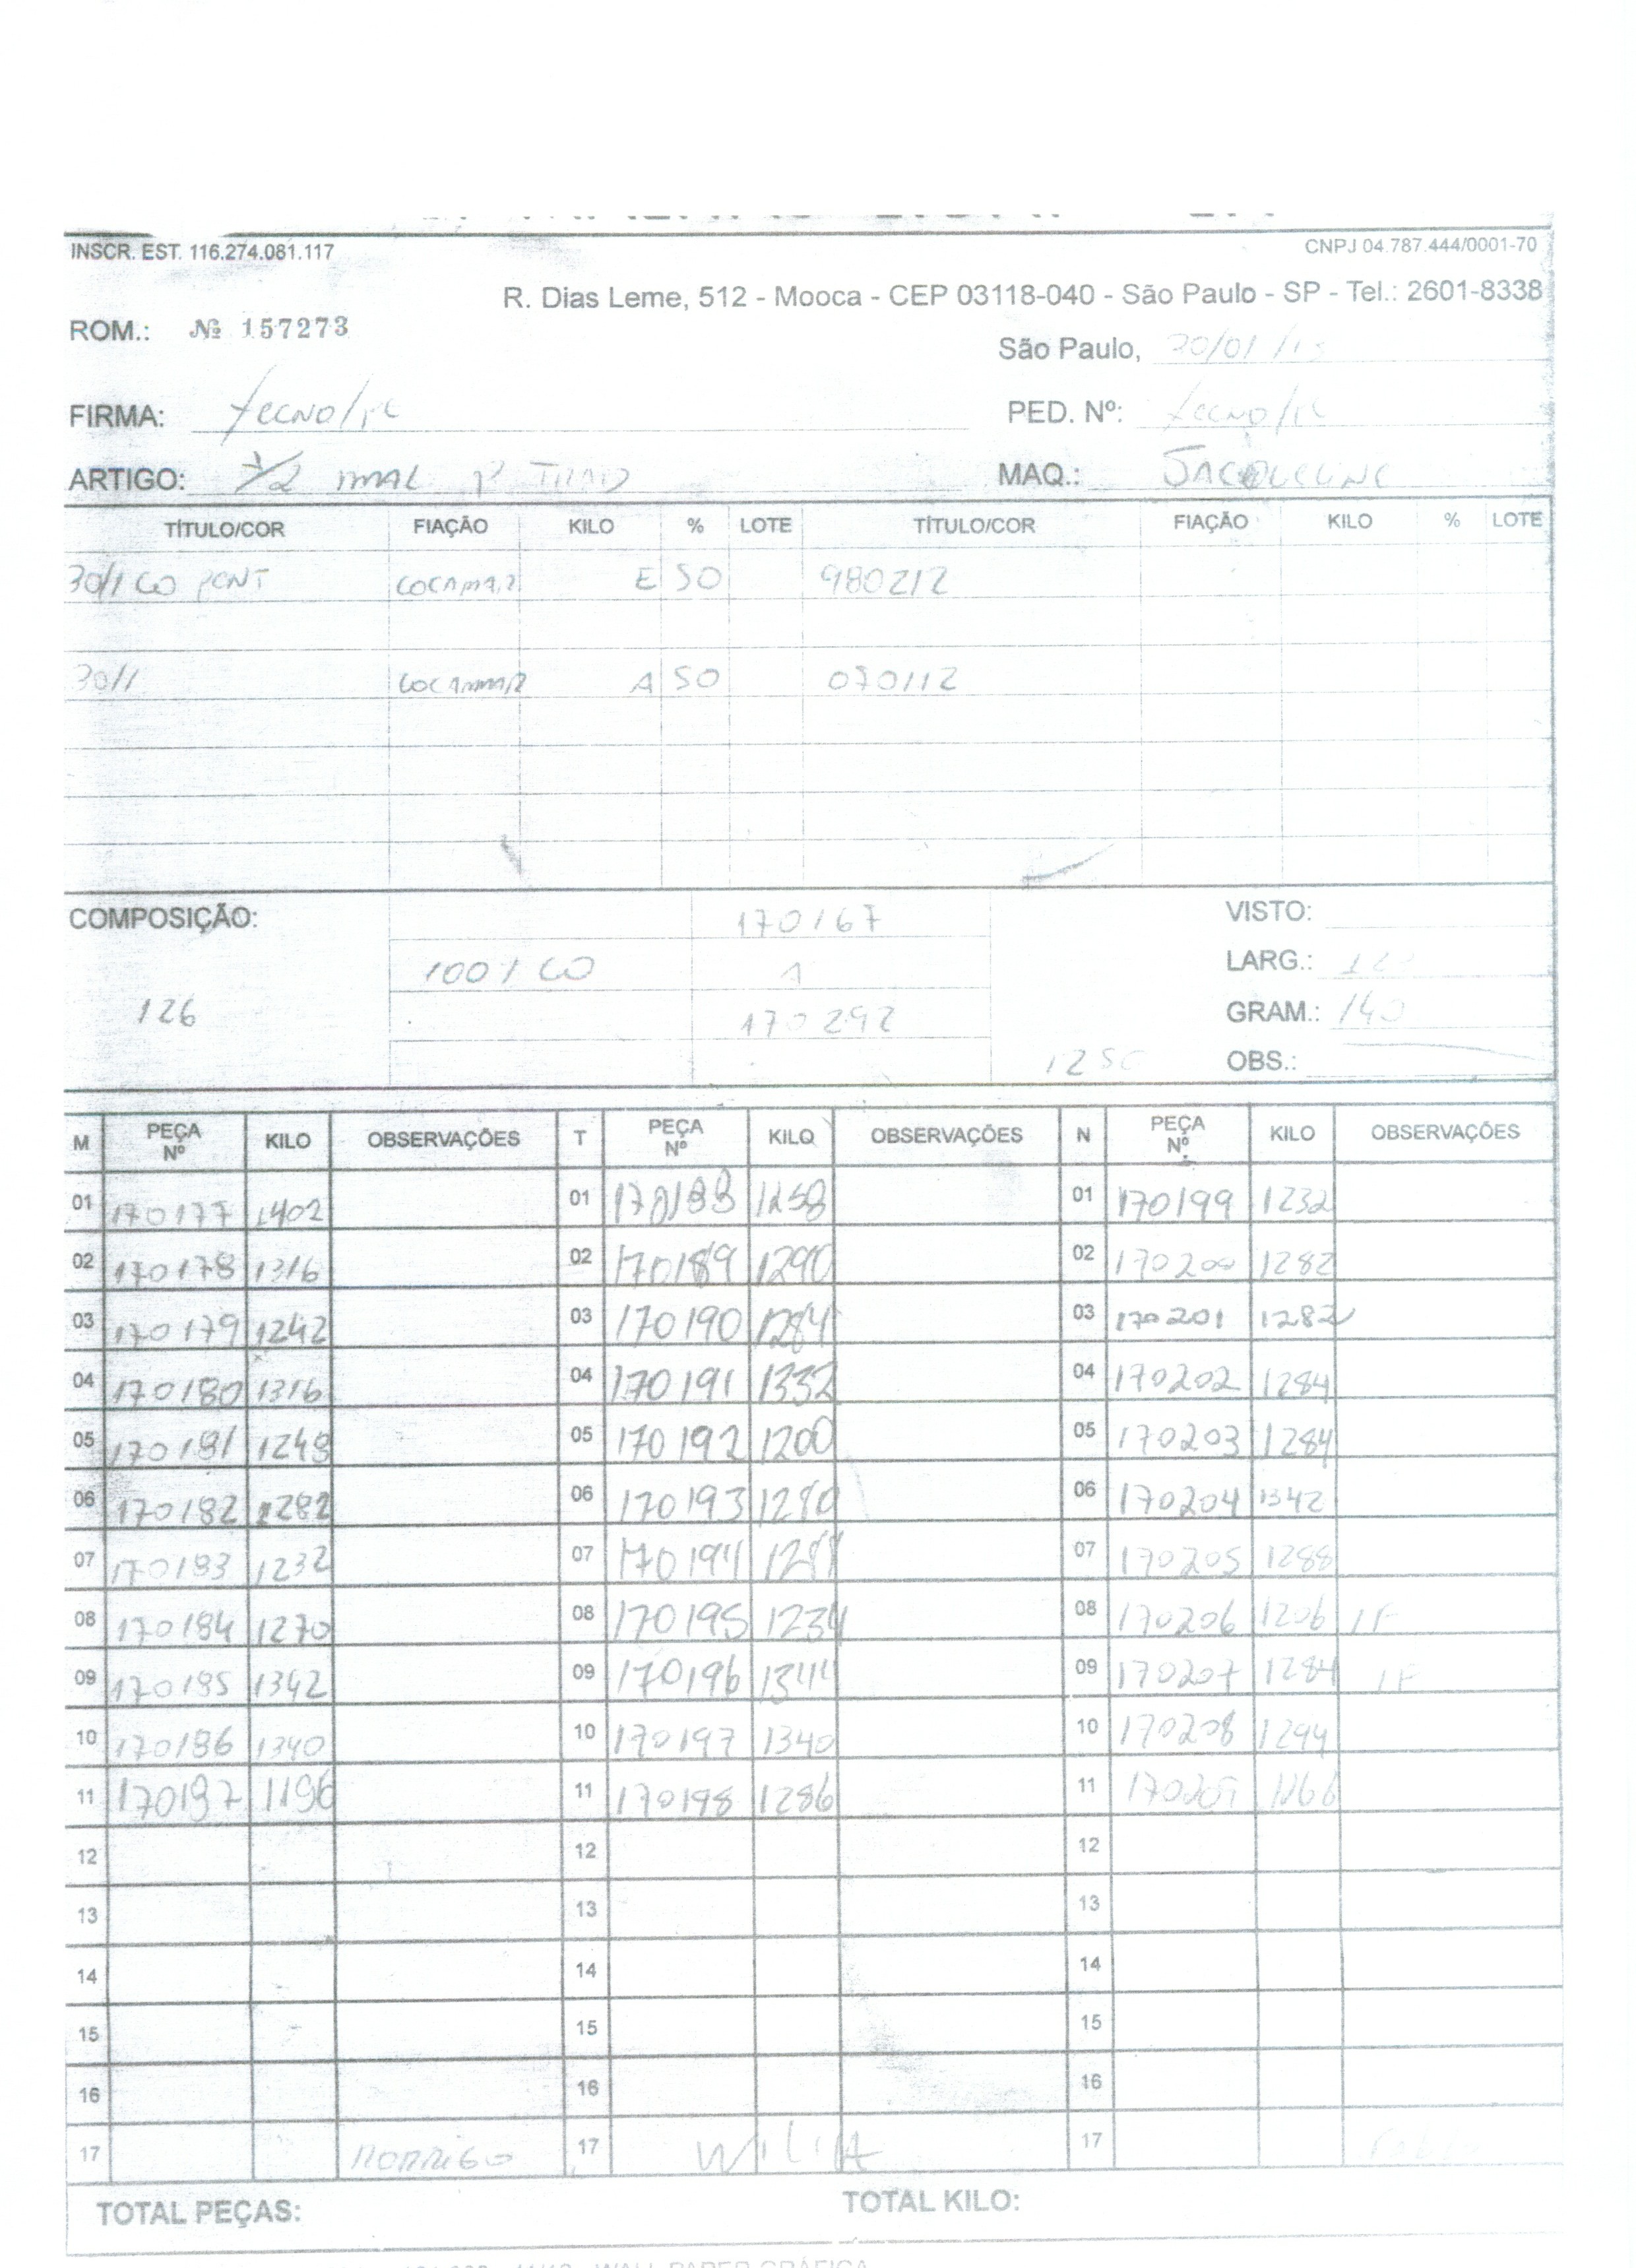 INSCR. EST. 116.274.081.117 CNPJ 04.787.444/0001-70
R. Dias Leme, 512 - Mooca - CEP 03118-040 - São Paulo - SP - Tel.: 2601-8338
ROM.: Nº 157273
São Paulo, 30/01/13
FIRMA: PED. Nº:
ARTIGO: 1/2 MAL P MAQ.:
TÍTULO/COR FIAÇÃO KILO % LOTE TÍTULO/COR FIAÇÃO KILO % LOTE
30/1 CO PENT COCAMAR E 50 980212
30/1 COCAMAR A 50 070112
COMPOSIÇÃO: 170167 VISTO:
100% CO A LARG.: 120
126 170292 GRAM.: 140
1250 OBS.:
M PEÇA Nº KILO OBSERVAÇÕES T PEÇA Nº KILO OBSERVAÇÕES N PEÇA Nº KILO OBSERVAÇÕES
01 170177 1402 01 170188 1258 01 170199 1232
02 170178 1316 02 170189 1290 02 170200 1282
03 170179 1242 03 170190 1284 03 170201 1282
04 170180 1316 04 170191 1332 04 170202 1284
05 170181 1248 05 170192 1200 05 170203 1284
06 170182 1282 06 170193 1280 06 170204 1342
07 170183 1232 07 170194 07 170205 1288
08 170184 1270 08 170195 1234 08 170206 1206 1F
09 170185 1342 09 170196 1344 09 170207 1284 1F
10 170186 1340 10 170197 1340 10 170208 1294
11 170187 1196 11 170198 1286 11 170209
12 12 12
13 13 13
14 14 14
15 15 15
16 16 16
17 RODRIGO 17 17
TOTAL PEÇAS: TOTAL KILO: